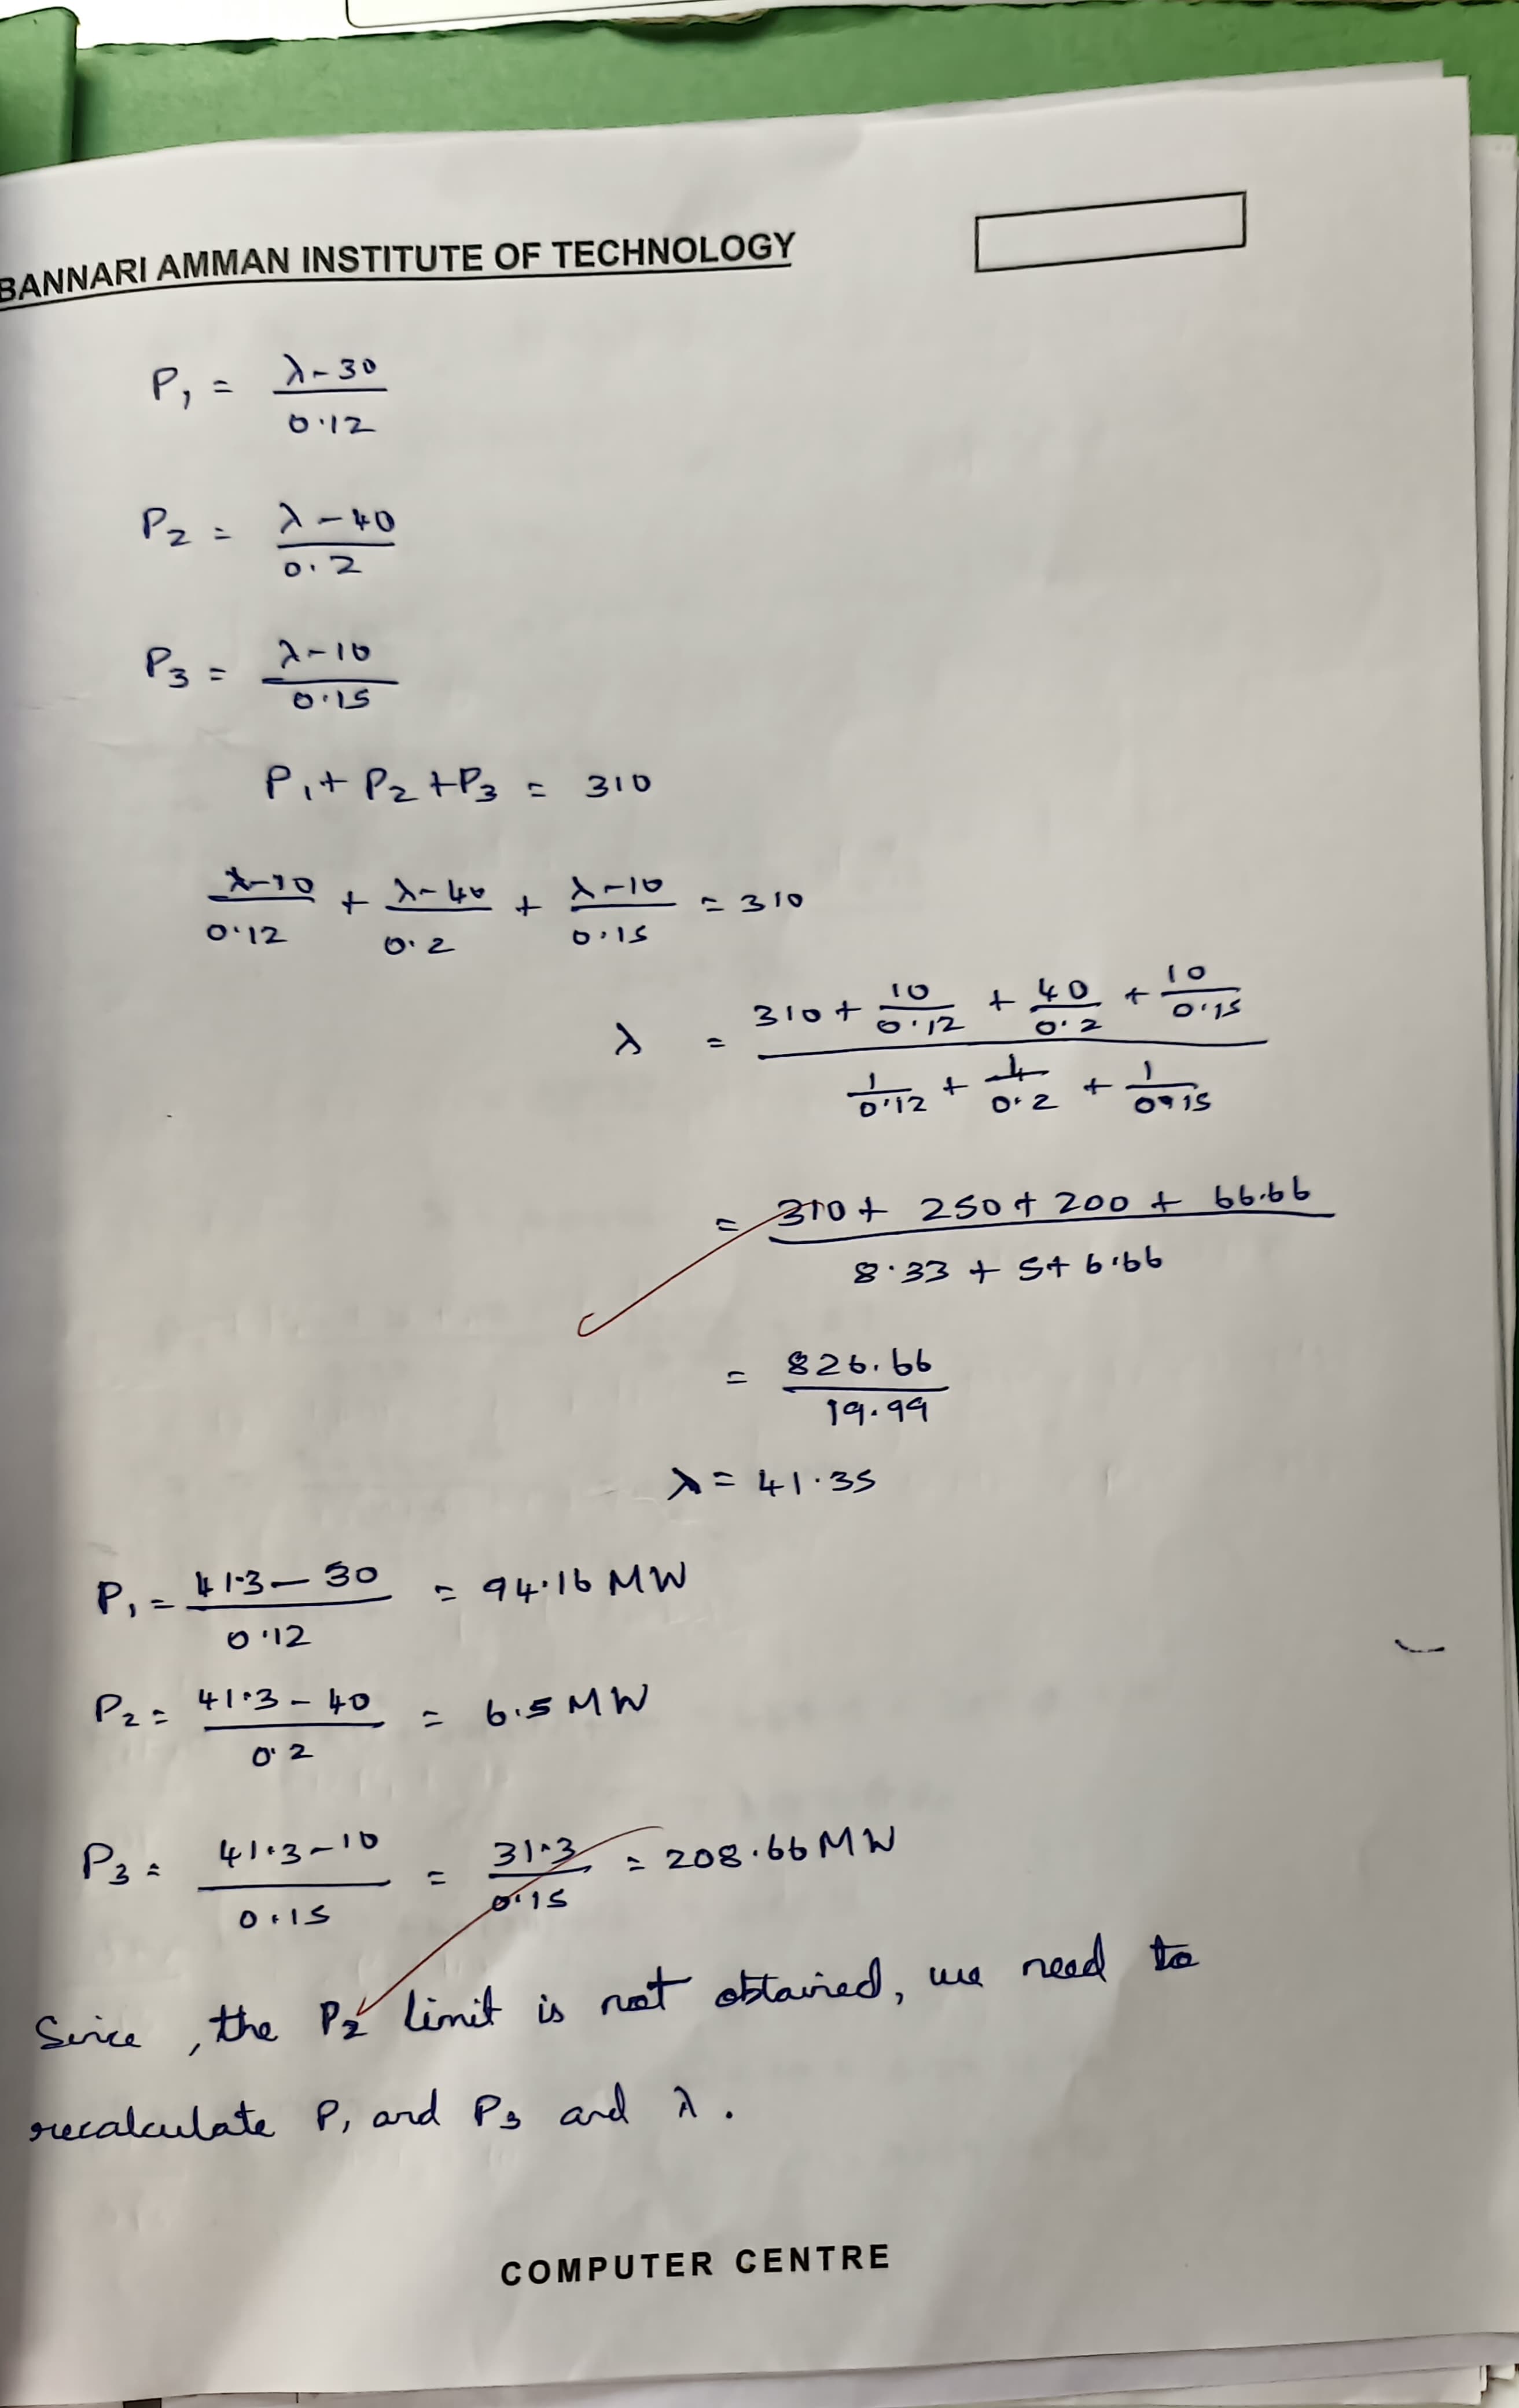 BANNARI AMMAN INSTITUTE OF TECHNOLOGY
P₁ = (λ-30)/0.12
P₂ = (λ-40)/0.2
P₃ = (λ-10)/0.15
P₁ + P₂ + P₃ = 310
(λ-10)/0.12 + (λ-40)/0.2 + (λ-10)/0.15 = 310
λ = (310 + 10/0.12 + 40/0.2 + 10/0.15)/(1/0.12 + 1/0.2 + 1/0.15)
= (310 + 250 + 200 + 66.66)/(8.33 + 5 + 6.66)
= 826.66/19.99
λ = 41.35
P₁ = (41.3-30)/0.12 = 94.16 MW
P₂ = (41.3-40)/0.2 = 6.5 MW
P₃ = (41.3-10)/0.15 = 31.3/0.15 = 208.66 MW
Since, the P₂ limit is not obtained, we need to
recalculate P₁ and P₃ and λ.
COMPUTER CENTRE